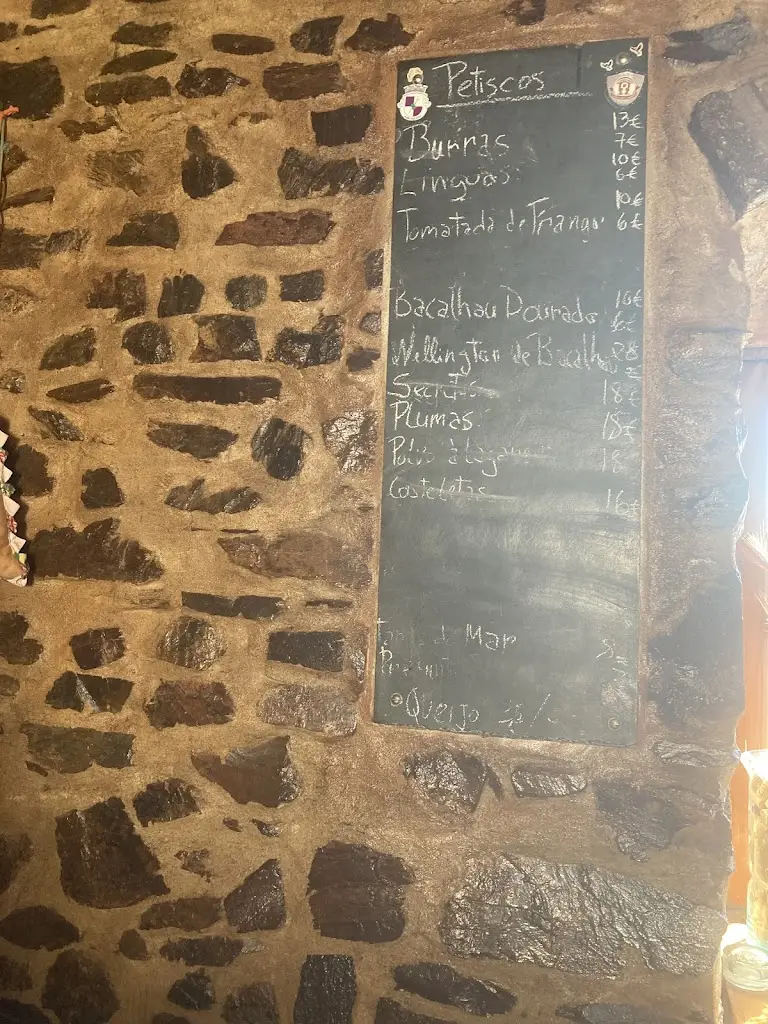 Petiscos
13€
Burras 7€
10€
Linguas 6€
10€
Tomatada de Frango 6€
Bacalhau Dourado 10€
6€
Wellington de Bacalhau 28€
Secretos 18€
Plumas 18€
Polvo à 18
Costeletas 16€
de Mar 8
Queijo